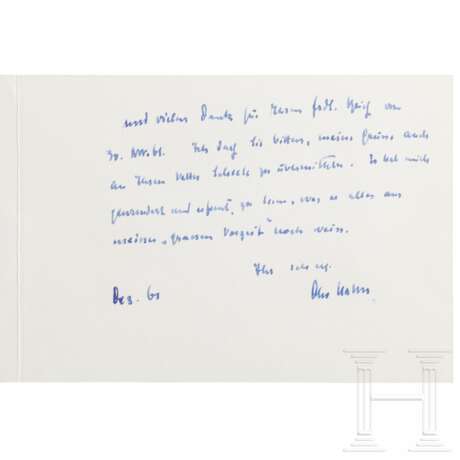 und vielen Dank für Ihren frdl. Brief vom
30. Nov. 61. Ich darf Sie bitten, meine Grüsse auch
an Ihren Vetter zu übermitteln. Es hat mich
gewundert und erfreut, zu lesen, was er alles aus
meiner „grauen Vorzeit“ noch weiss.
Ihr sehr erg.
Dez. 61
Otto Hahn.
H